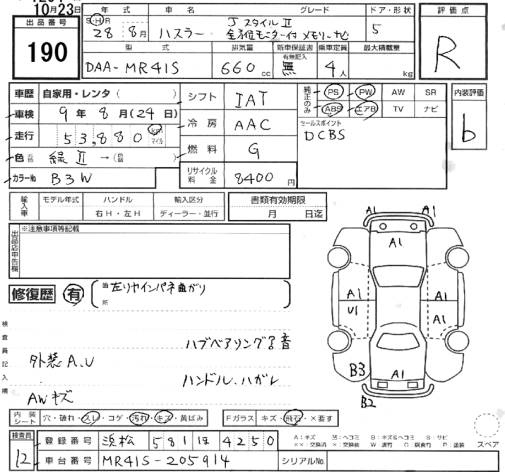 10月23日
出品番号 190
年式 グレード ドア・形状 評価点
28年 8月 ハスラー JスタイルⅡ 全方位モニター付メモリーナビ 5 R
型式 排気量 新車保証書 有無記入 乗車定員 最大積載量
DAA-MR41S 660cc 無 4人 kg
車歴 自家用・レンタ( )
車検 9年8月(24日)
走行 53,880 km マイル
色 緑Ⅱ →( )
カラー№ B3W
シフト IAT
冷房 AAC
燃料 G
リサイクル料金 8400円
純正のみ PS PW AW SR
ABS エアB TV ナビ
セールスポイント
DCBS
内装評価 b
輸入車 モデル年式 ハンドル 右H・左H 輸入区分 ディーラー・並行
書類有効期限 月 日迄
出品店申告欄 ※注意事項等記載
修復歴 有 箇所 左リヤインパネ曲がり
検査員記入欄
ハブベアリング音
外装A.U
ハンドル.ハガレ
AWキズ
A1 A1 A1 A1 U1 A1 A1 B3 A1 B2
内装シート 穴・破れ・スレ・コゲ・汚れ・キズ・黄ばみ
Fガラス キズ・飛石・×要す
スペア
検査員 12
登録番号 浜松 581 ほ 4250
車台番号 MR41S-205914
シリアルNo.